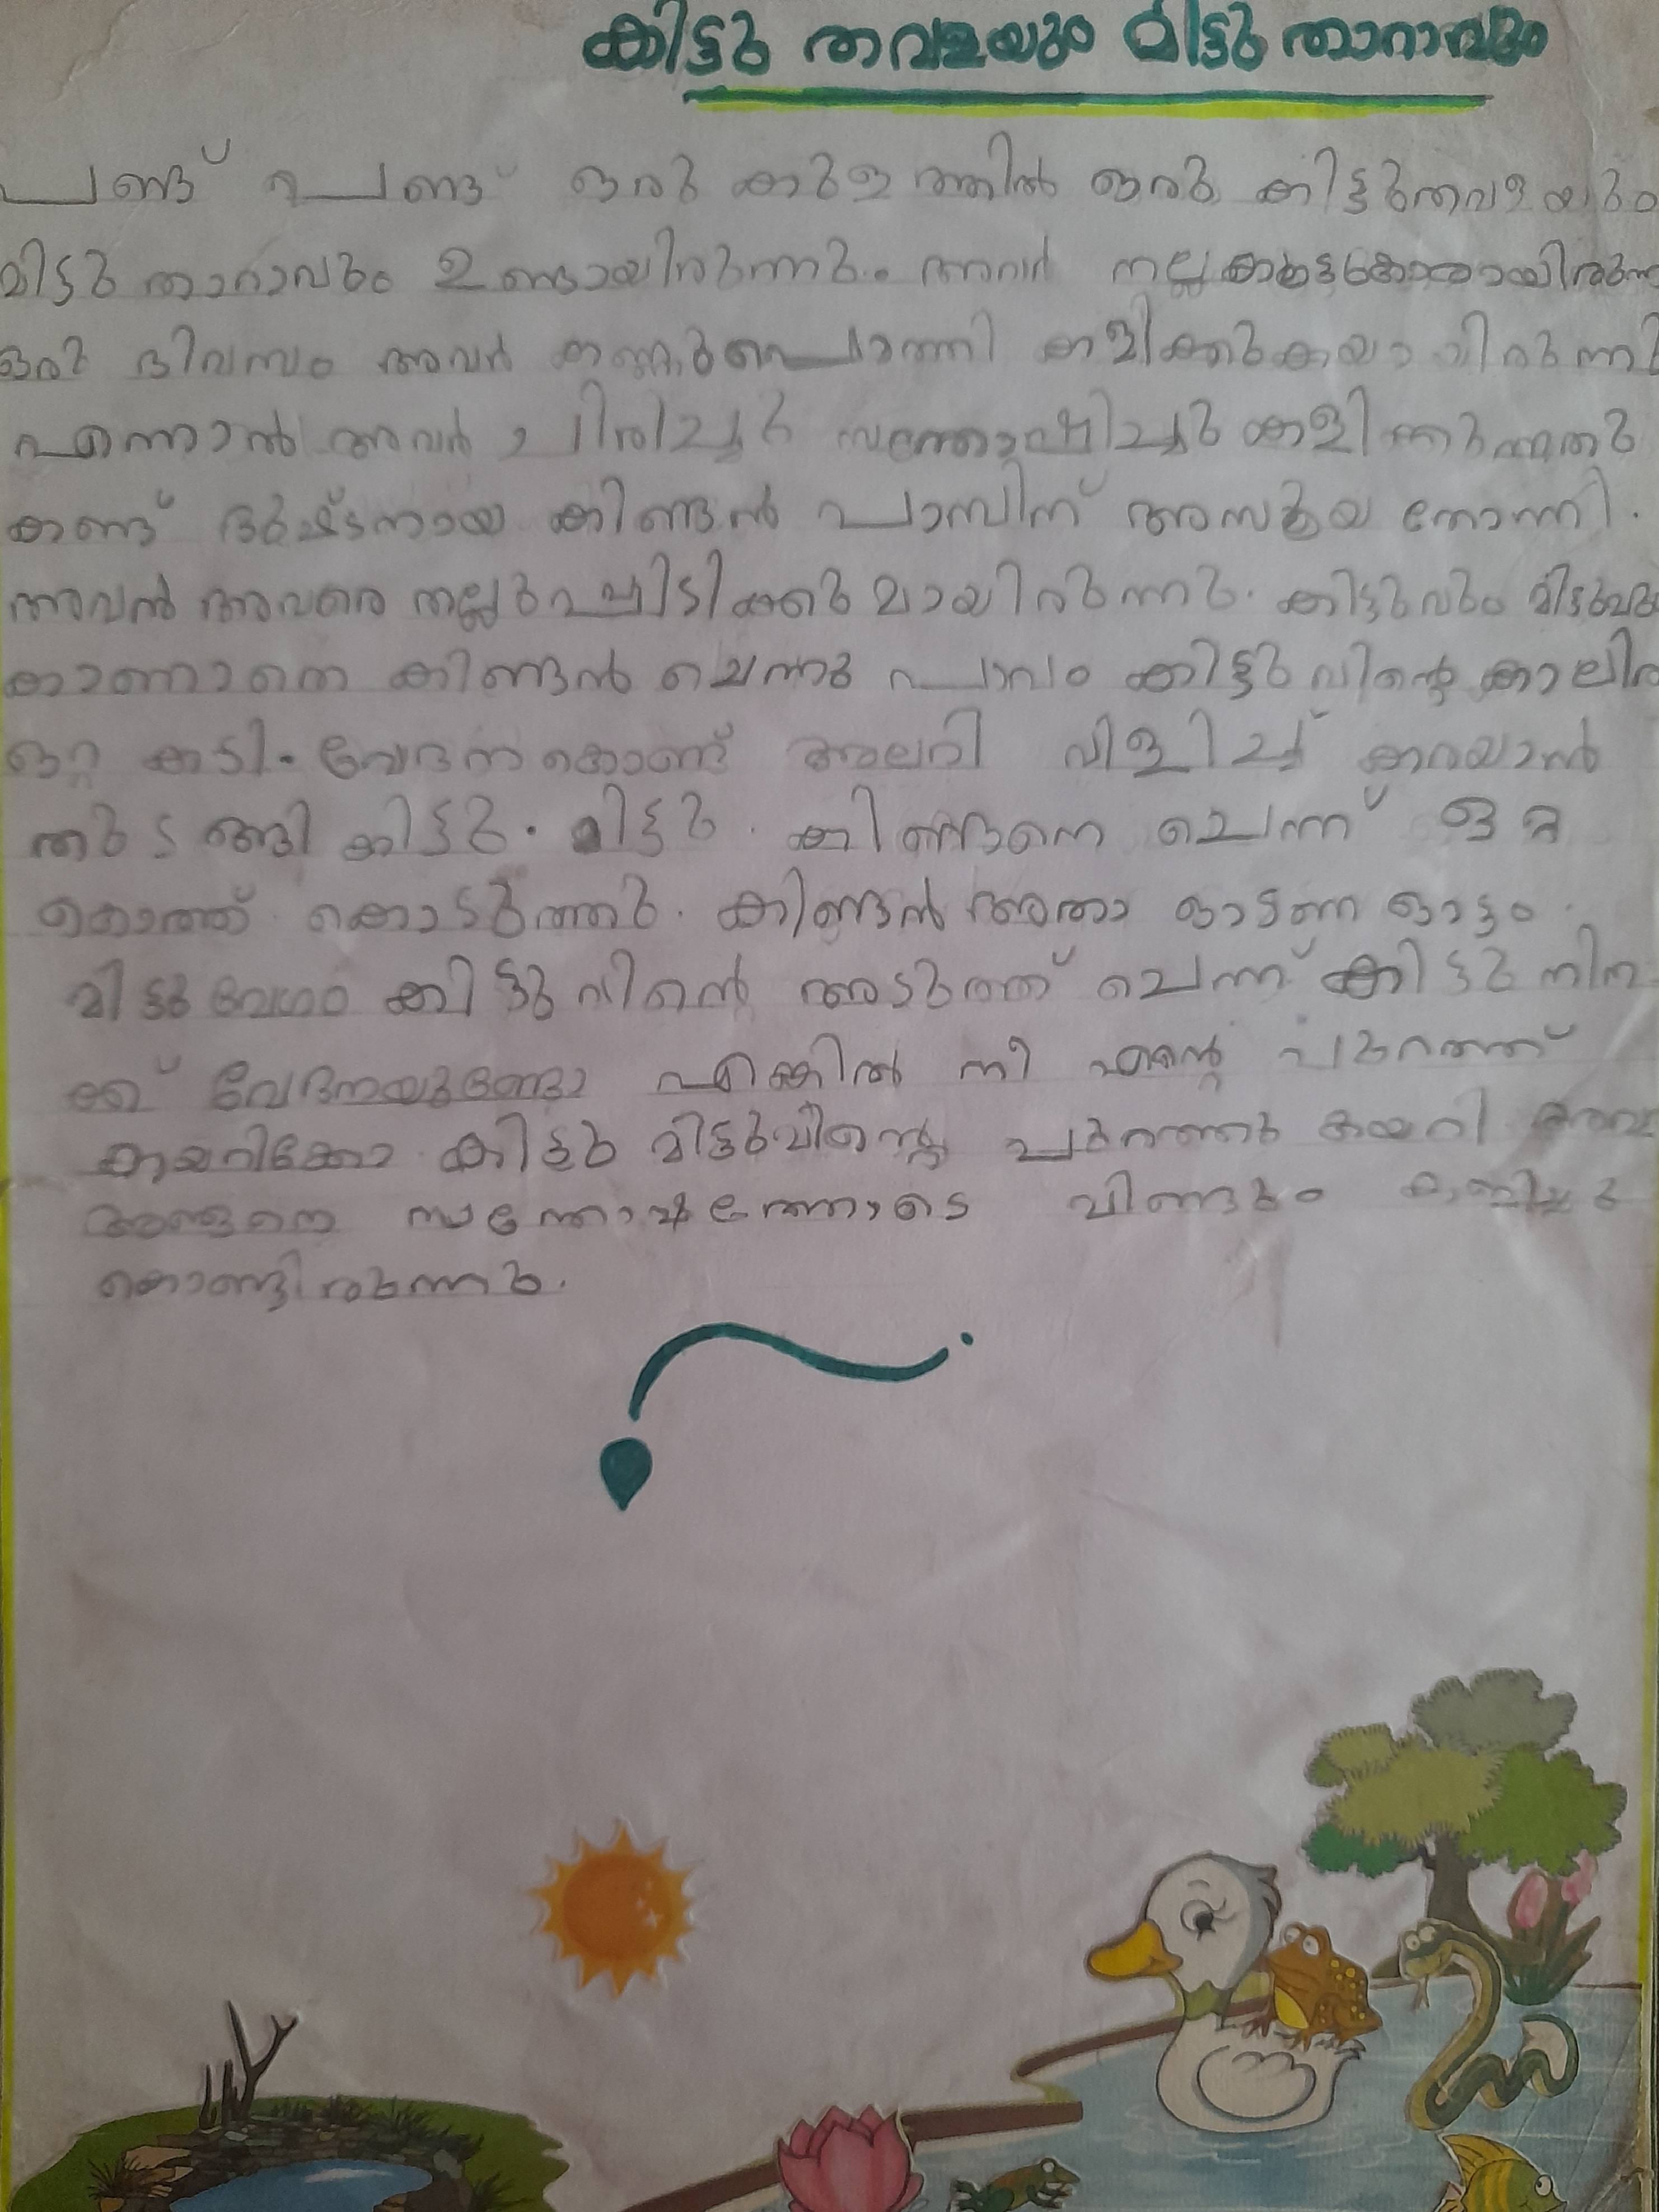 കിട്ടു തവളയും മിട്ടു താറാവും
പണ്ട് പണ്ട് ഒരു കുളത്തിൽ ഒരു കിട്ടുതവളയും
മിട്ടു താറാവും ഉണ്ടായിരുന്നു. അവർ നല്ല
ഒരു ദിവസം അവർ കണ്ണുപൊത്തി കളിക്കുകയായിരുന്നു
എന്നാൽ അവർ ചിരിച്ചു സന്തോഷിച്ചു കളിക്കുന്നതു
കണ്ട് ദുഷ്ടനായ കിണ്ടൻ പാമ്പിന് അസൂയ തോന്നി.
അവൻ അവരെ തല്ലുപ്പിടിക്കുമായിരുന്നു. കിട്ടുവും മിട്ടുവും
കാണാതെ കിണ്ടൻ ചെന്നു പാവം കിട്ടുവിന്റെ കാലിൽ
ഒറ്റ കടി. വേദനകൊണ്ട് അലറി വിളിച്ച് കരയാൻ
തുടങ്ങി കിട്ടു. മിട്ടു. കിണ്ടനെ ചെന്ന് ഒറ്റ
കൊത്ത് കൊടുത്തു. കിണ്ടൻ അതാ ഓടണ ഓട്ടം.
മിട്ടു വേഗം കിട്ടുവിൻെ അടുത്ത് ചെന്ന് കിട്ടു നിന
ക്ക് വേദനയുണ്ടോ എങ്കിൽ നീ എന്റെ പുറത്ത്
കയറിക്കോ കിട്ടു മിട്ടുവിന്റെ പുറത്തു കയറി അവർ
അങ്ങനെ സന്തോഷത്തോടെ വീണ്ടും കളിച്ചു
കൊണ്ടിരുന്നു.